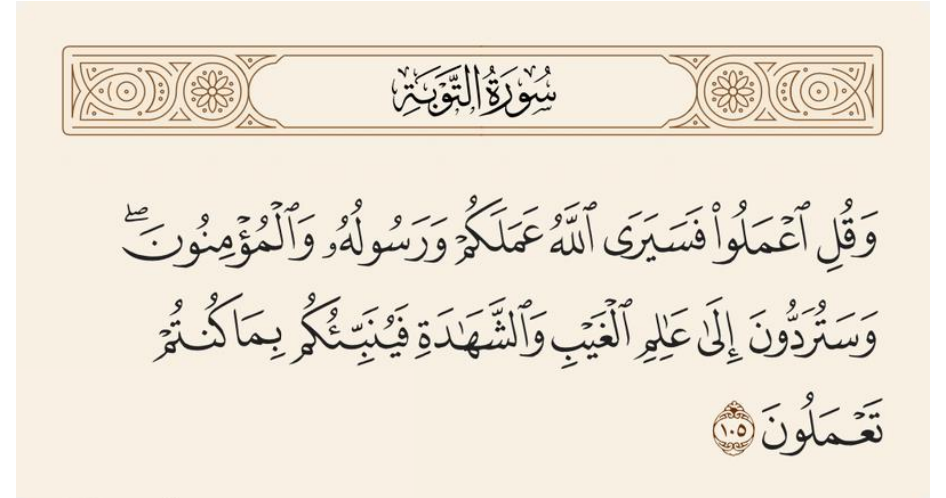 سُورَةُ التَّوْبَةِ
وَقُلِ ٱعْمَلُوا۟ فَسَيَرَى ٱللَّهُ عَمَلَكُمْ وَرَسُولُهُۥ وَٱلْمُؤْمِنُونَ ۖ
وَسَتُرَدُّونَ إِلَىٰ عَٰلِمِ ٱلْغَيْبِ وَٱلشَّهَٰدَةِ فَيُنَبِّئُكُم بِمَا كُنتُمْ
تَعْمَلُونَ ١٠٥